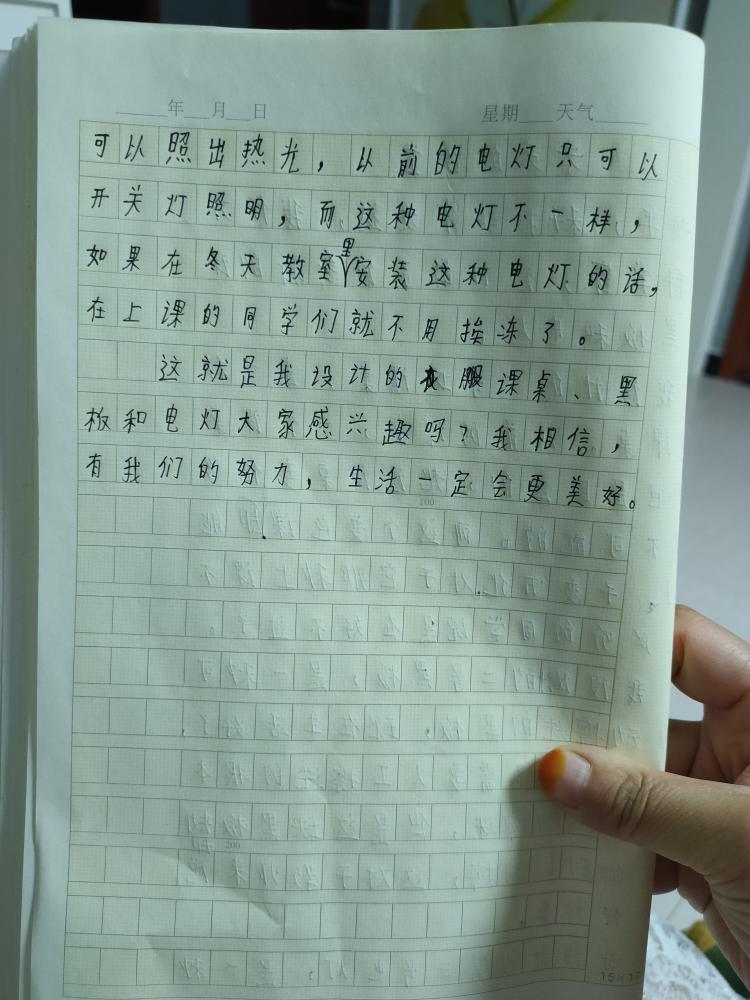 年 月 日 星期 天气
可以照出热光，以前的电灯只可以
开关灯照明，而这种电灯不一样，
如果在冬天教室里安装这种电灯的话，
在上课的同学们就不用挨冻了。
这就是我设计的服课桌、黑
板和电灯大家感兴趣吗？我相信，
有我们的努力，生活一定会更美好。
100
200
15×17